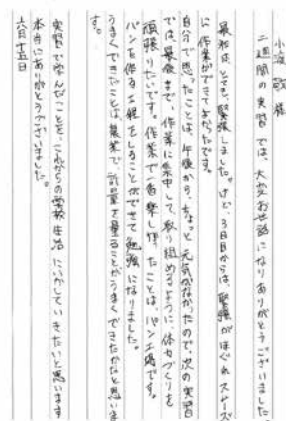 小深 敬 様
二週間の実習では、大変お世話になりありがとうございました。
最初は、とても緊張しました。けど、3日目からは、緊張がほぐれスムーズ
に作業ができてよかったです。
自分で思ったことは、午後から、ちょっと元気がなかったので、次の実習
では、最後まで、作業に集中して、取り組めるように、体力づくりを
頑張りたいです。作業で一番楽しかったことは、パン工場です。
パンを作る工程をしることができて勉強になりました。
うまくできたことは、農業で、計量を量ることがうまくできたかなと思いま
す。
実習で学んだことを、これからの学校生活にいかしていきたいと思います
本当にありがとうございました。
六月十五日